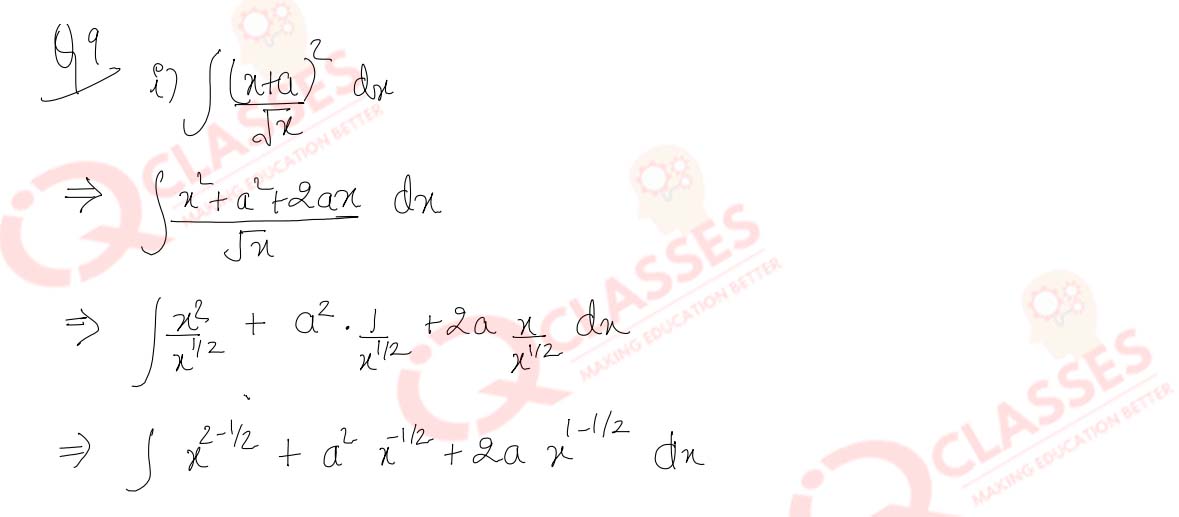 Q9
i) ∫ (x+a)² / √x dx
⇒ ∫ x² + a² + 2ax / √x dx
⇒ ∫ x² / x^1/2 + a² · 1 / x^1/2 + 2a x / x^1/2 dx
⇒ ∫ x^2-1/2 + a² x^-1/2 + 2a x^1-1/2 dx
CLASSES
MAKING EDUCATION BETTER
CLASSES
MAKING EDUCATION BETTER
CLASSES
MAKING EDUCATION BETTER